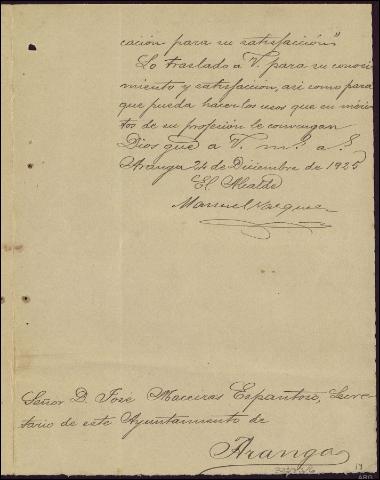 cación para su satisfacción"
Lo traslado a V. para su conoci-
miento y satisfacción, así como para
que pueda hacer los usos que en méri-
tos de su profesión le convengan
Dios gue a V. ms. as.
Aranga 24 de Diciembre de 1925
El Alcalde
Manuel Vazquez
Señor D. José Maceiras Espantoso, Secre-
tario de este Ayuntamiento de
Aranga
ARG